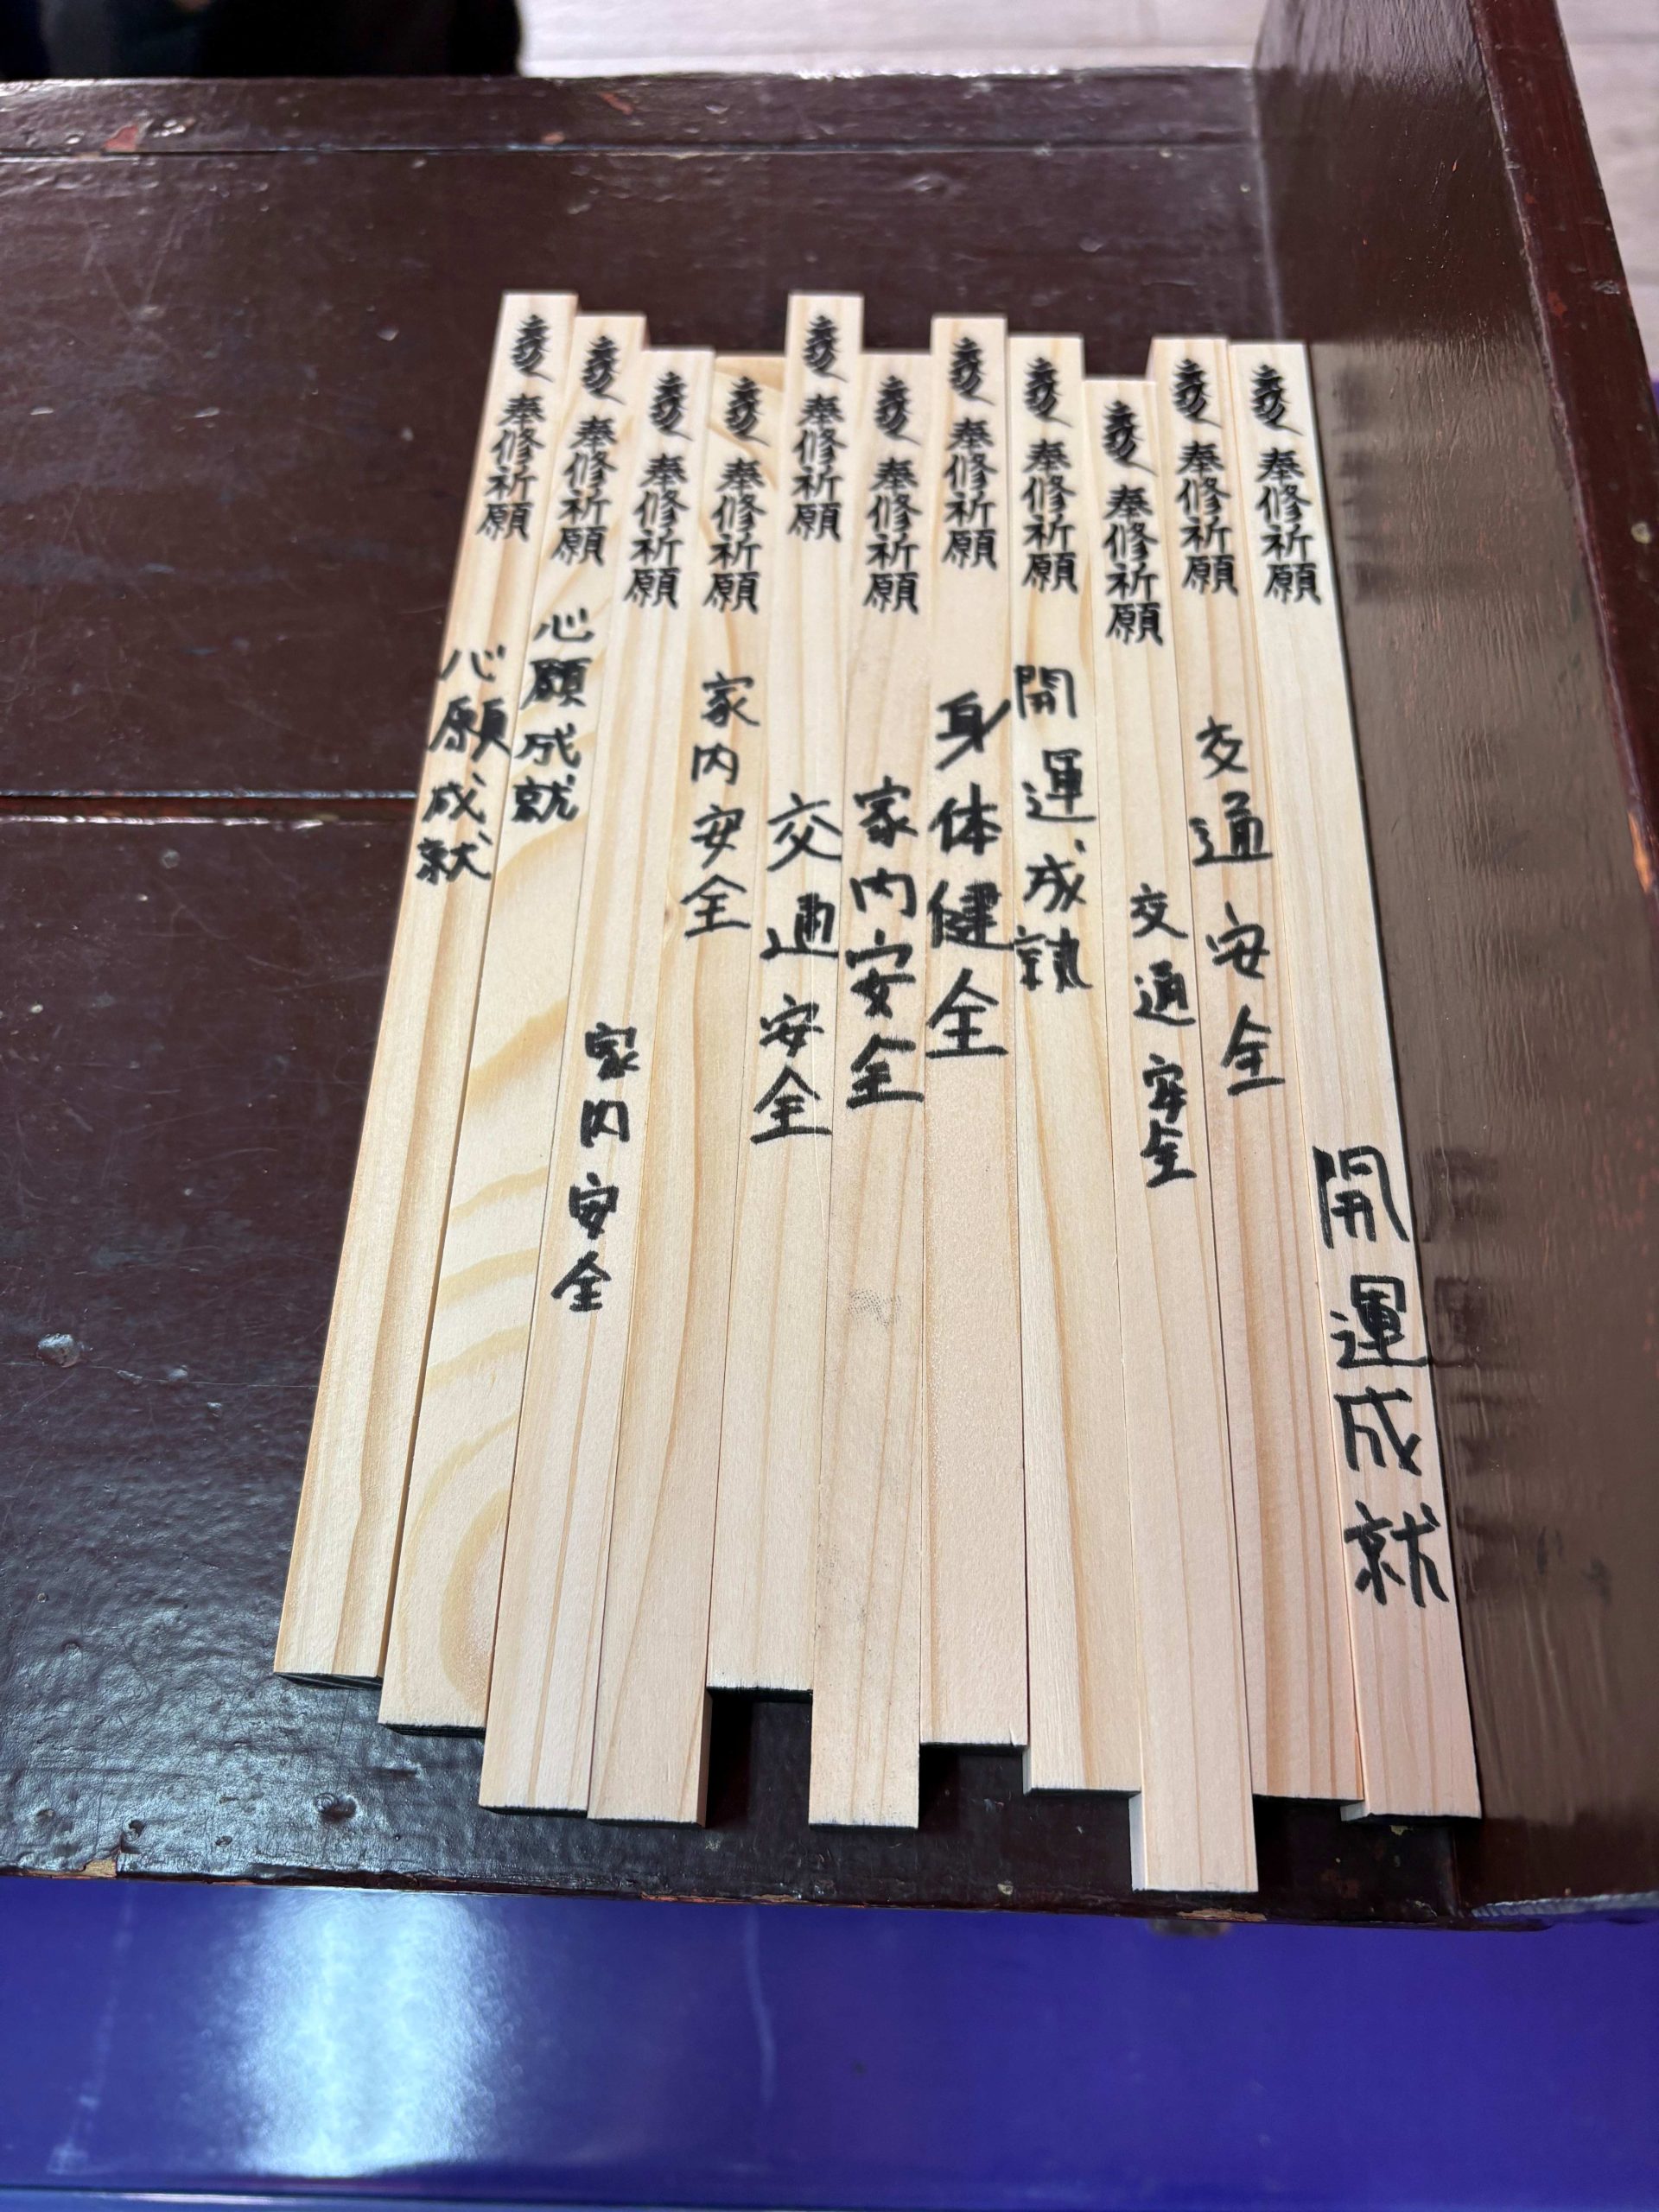 奉修祈願 開運成就
奉修祈願 交通安全
奉修祈願 交通安全
奉修祈願 開運成就
奉修祈願 身体健全
奉修祈願 家内安全
奉修祈願 交通安全
奉修祈願 家内安全
奉修祈願 家内安全
奉修祈願 心願成就
奉修祈願 心願成就